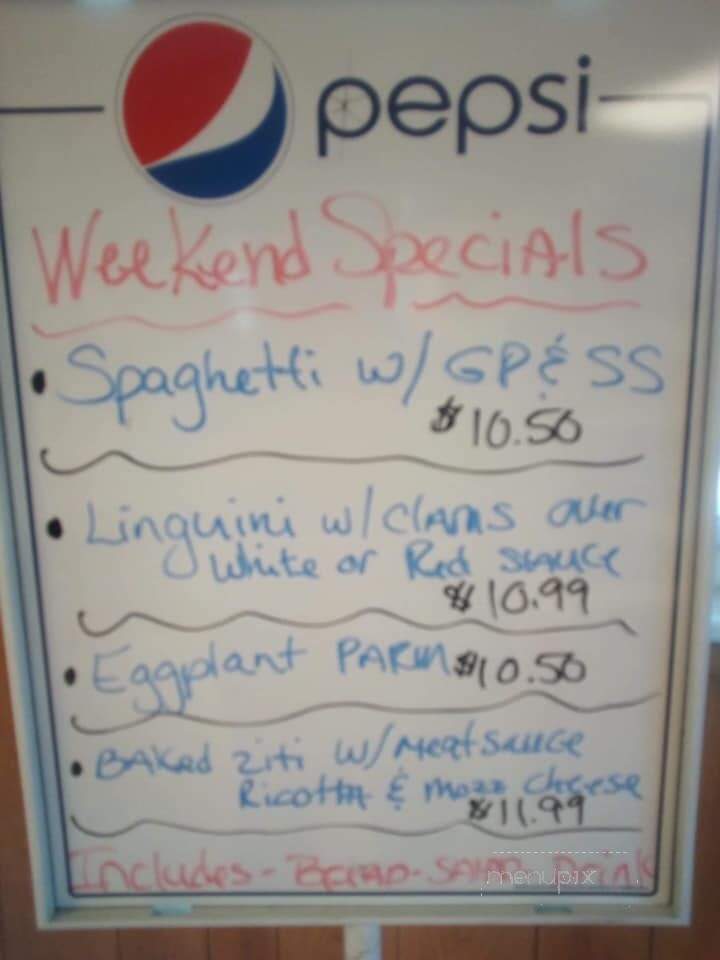 pepsi
Weekend Specials
• Spaghetti w/ GP & SS
$10.50
• Linguini w/ clams over
White or Red sauce
$10.99
• Eggplant PARM $10.50
• BAKed Ziti w/ Meat sauce
Ricotta & Mozz cheese
$11.99
Includes - Bread - SALAD - Drink
menupix